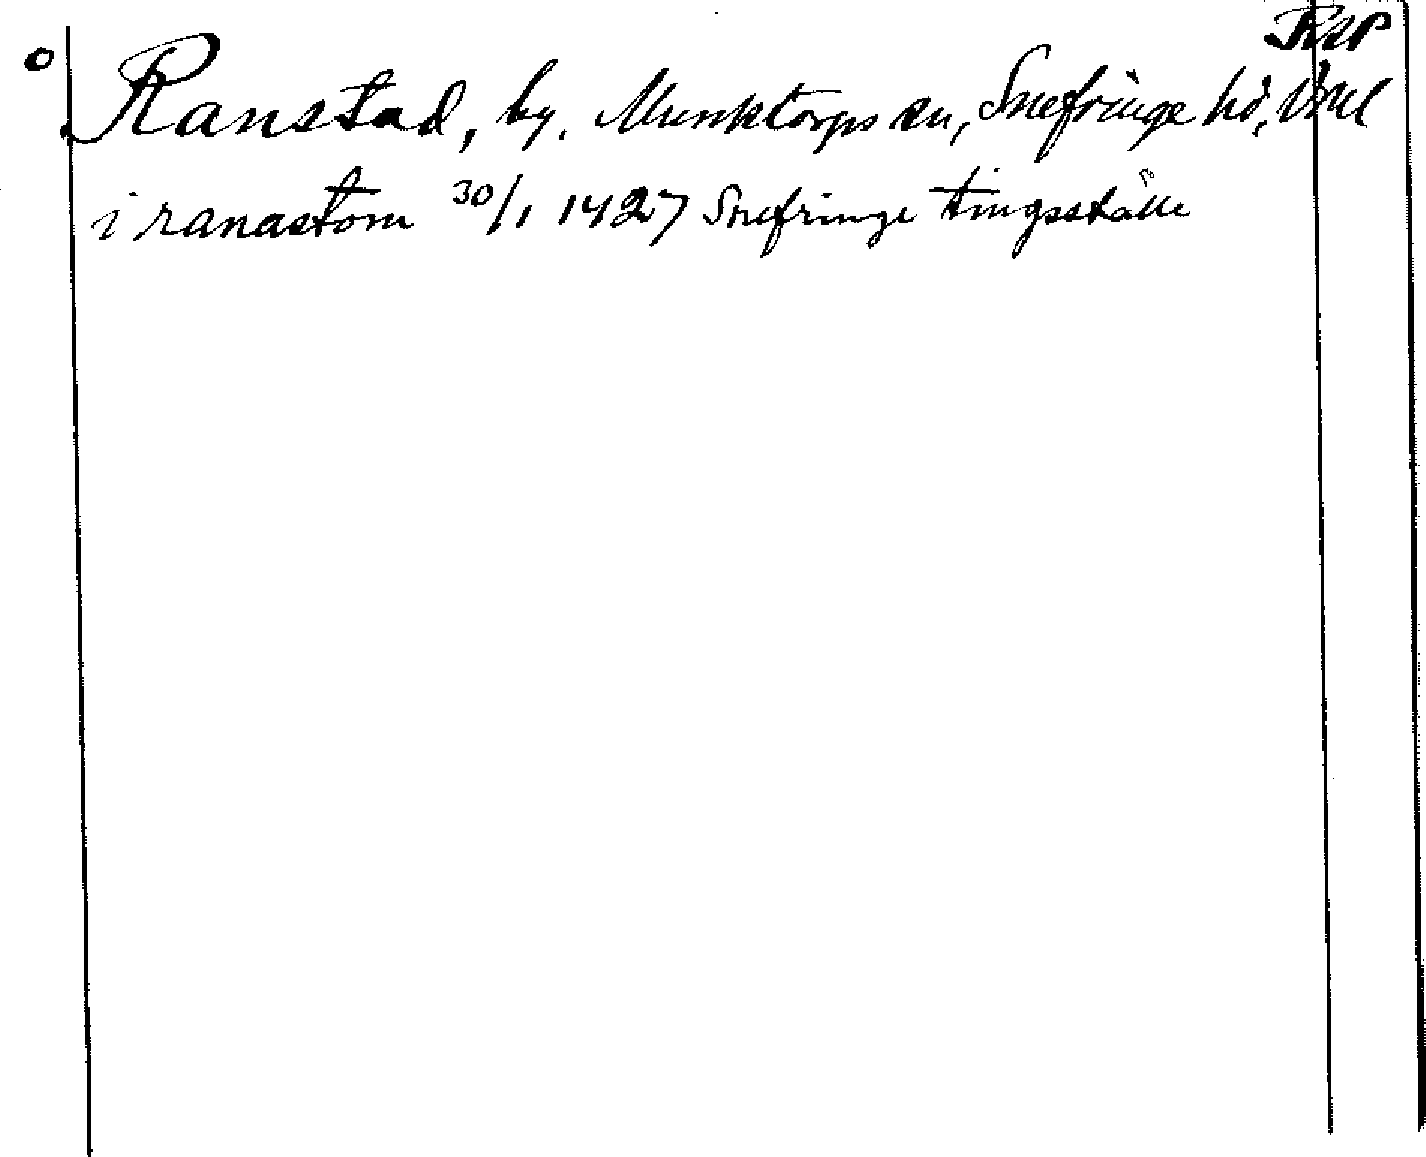 Ranstad, by. Munktorps sn, Snefringe hd, Vml
i ranastom 30/1 1427 Snefringe tingsställe